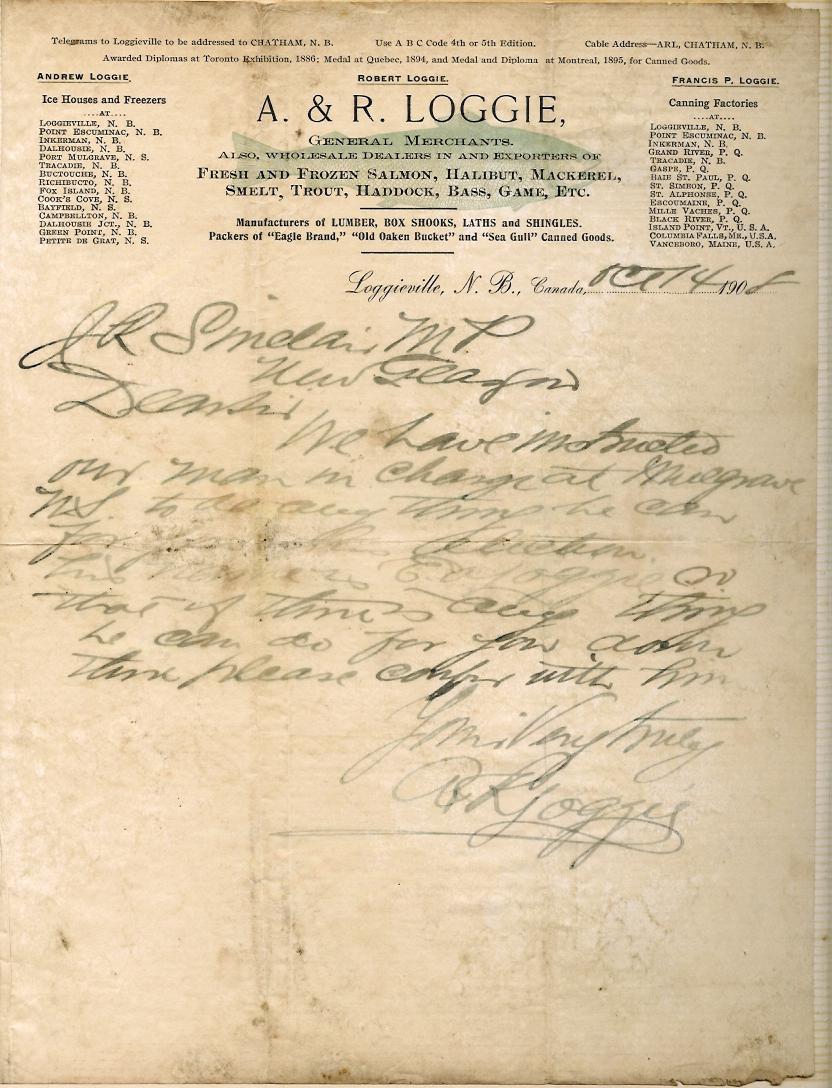 Telegrams to Loggieville to be addressed to CHATHAM, N. B. Use A B C Code 4th or 5th Edition. Cable Address—ARL, CHATHAM, N. B.
Awarded Diplomas at Toronto Exhibition, 1886; Medal at Quebec, 1894, and Medal and Diploma at Montreal, 1895, for Canned Goods.
ANDREW LOGGIE. ROBERT LOGGIE. FRANCIS P. LOGGIE.
Ice Houses and Freezers
....AT....
LOGGIEVILLE, N. B.
POINT ESCUMINAC, N. B.
INKERMAN, N. B.
DALHOUSIE, N. B.
PORT MULGRAVE, N. S.
TRACADIE, N. B.
BUCTOUCHE, N. B.
RICHIBUCTO, N. B.
FOX ISLAND, N. B.
COOK'S COVE, N. S.
BAYFIELD, N. S.
CAMPBELLTON, N. B.
DALHOUSIE JCT., N. B.
GREEN POINT, N. B.
PETITE DE GRAT, N. S.
A. & R. LOGGIE,
GENERAL MERCHANTS.
ALSO, WHOLESALE DEALERS IN AND EXPORTERS OF
FRESH AND FROZEN SALMON, HALIBUT, MACKEREL,
SMELT, TROUT, HADDOCK, BASS, GAME, ETC.
Manufacturers of LUMBER, BOX SHOOKS, LATHS and SHINGLES.
Packers of "Eagle Brand," "Old Oaken Bucket" and "Sea Gull" Canned Goods.
Canning Factories
....AT....
LOGGIEVILLE, N. B.
POINT ESCUMINAC, N. B.
INKERMAN, N. B.
GRAND RIVER, P. Q.
TRACADIE, N. B.
GASPE, P. Q.
BAIE ST. PAUL, P. Q.
ST. SIMEON, P. Q.
ST. ALPHONSE, P. Q.
ESCOUMAINE, P. Q.
MILLE VACHES, P. Q.
BLACK RIVER, P. Q.
ISLAND POINT, VT., U. S. A.
COLUMBIA FALLS, ME., U.S.A.
VANCEBORO, MAINE, U.S.A.
Loggieville, N. B., Canada, Oct 14 1908
J R Sinclair MP
New Glasgow
Dear Sir
We have instructed
our man in charge at Mulgrave
NS to do any thing he can
for you this Election
his name is Loggie so
that if there is any thing
he can do for you down
there please confer with him
Yours Very truly
Loggie